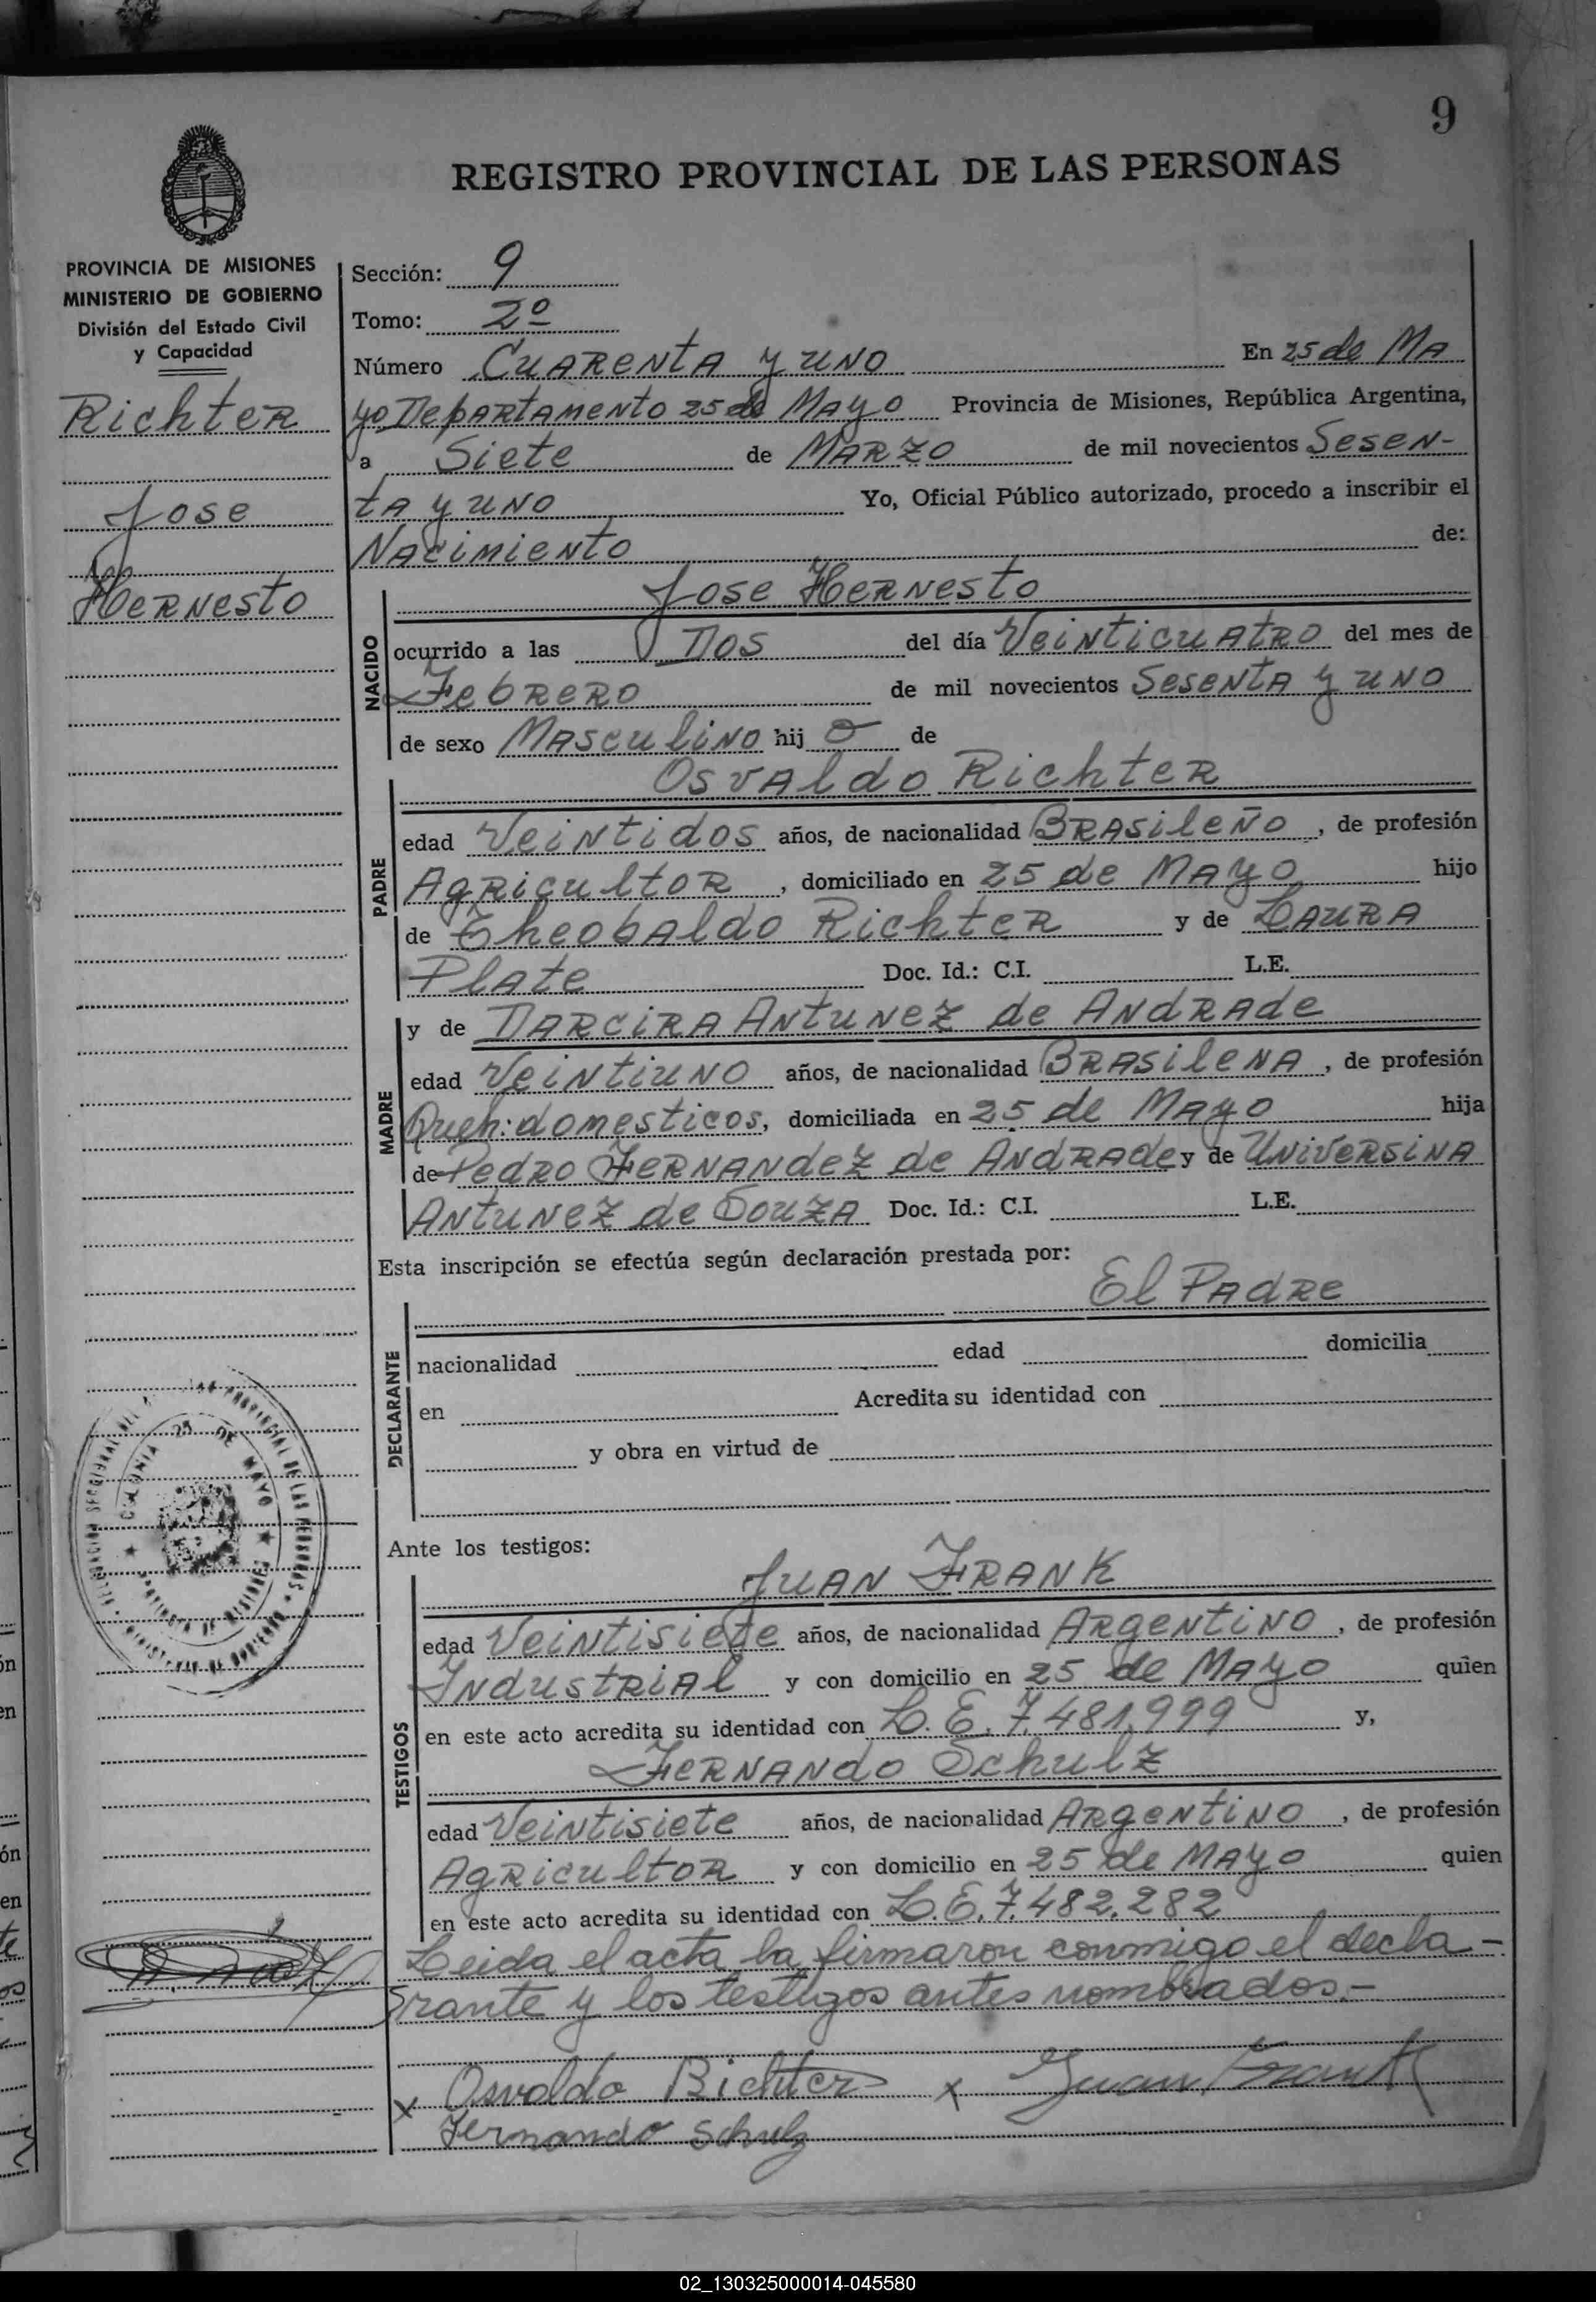 9
REGISTRO PROVINCIAL DE LAS PERSONAS
PROVINCIA DE MISIONES
MINISTERIO DE GOBIERNO
División del Estado Civil
y Capacidad
Richter
Jose
Hernesto
Sección: 9
Tomo: 2º
Número Cuarenta y uno En 25 de Ma
yo Departamento 25 de Mayo Provincia de Misiones, República Argentina,
a Siete de Marzo de mil novecientos Sesen-
ta y uno Yo, Oficial Público autorizado, procedo a inscribir el
Nacimiento de:
Jose Hernesto
NACIDO
ocurrido a las Dos del día Veinticuatro del mes de
Febrero de mil novecientos Sesenta y uno
de sexo Masculino hij o de
Osvaldo Richter
PADRE
edad Veintidos años, de nacionalidad Brasileño, de profesión
Agricultor, domiciliado en 25 de Mayo hijo
de Theobaldo Richter y de Laura
Plate Doc. Id.: C.I. L.E.
MADRE
y de Darcira Antunez de Andrade
edad Veintiuno años, de nacionalidad Brasilena, de profesión
Queh: domesticos, domiciliada en 25 de Mayo hija
de Pedro Fernandez de Andrade y de Universina
Antunez de Souza Doc. Id.: C.I. L.E.
Esta inscripción se efectúa según declaración prestada por:
El Padre
DECLARANTE
nacionalidad edad domicilia
en Acredita su identidad con
y obra en virtud de
COLONIA 25 DE MAYO
PROVINCIA DE MISIONES
Ante los testigos:
Juan Frank
TESTIGOS
edad Veintisiete años, de nacionalidad Argentino, de profesión
Industrial y con domicilio en 25 de Mayo quien
en este acto acredita su identidad con L.E. 7.481.999 y,
Fernando Schulz
edad Veintisiete años, de nacionalidad Argentino, de profesión
Agricultor y con domicilio en 25 de Mayo quien
en este acto acredita su identidad con L.E. 7.482.282
Leida el acta la firmaron conmigo el decla-
rante y los testigos antes nombrados.-
x Osvaldo Richter x Juan Frank
Fernando Schulz
02_130325000014-045580